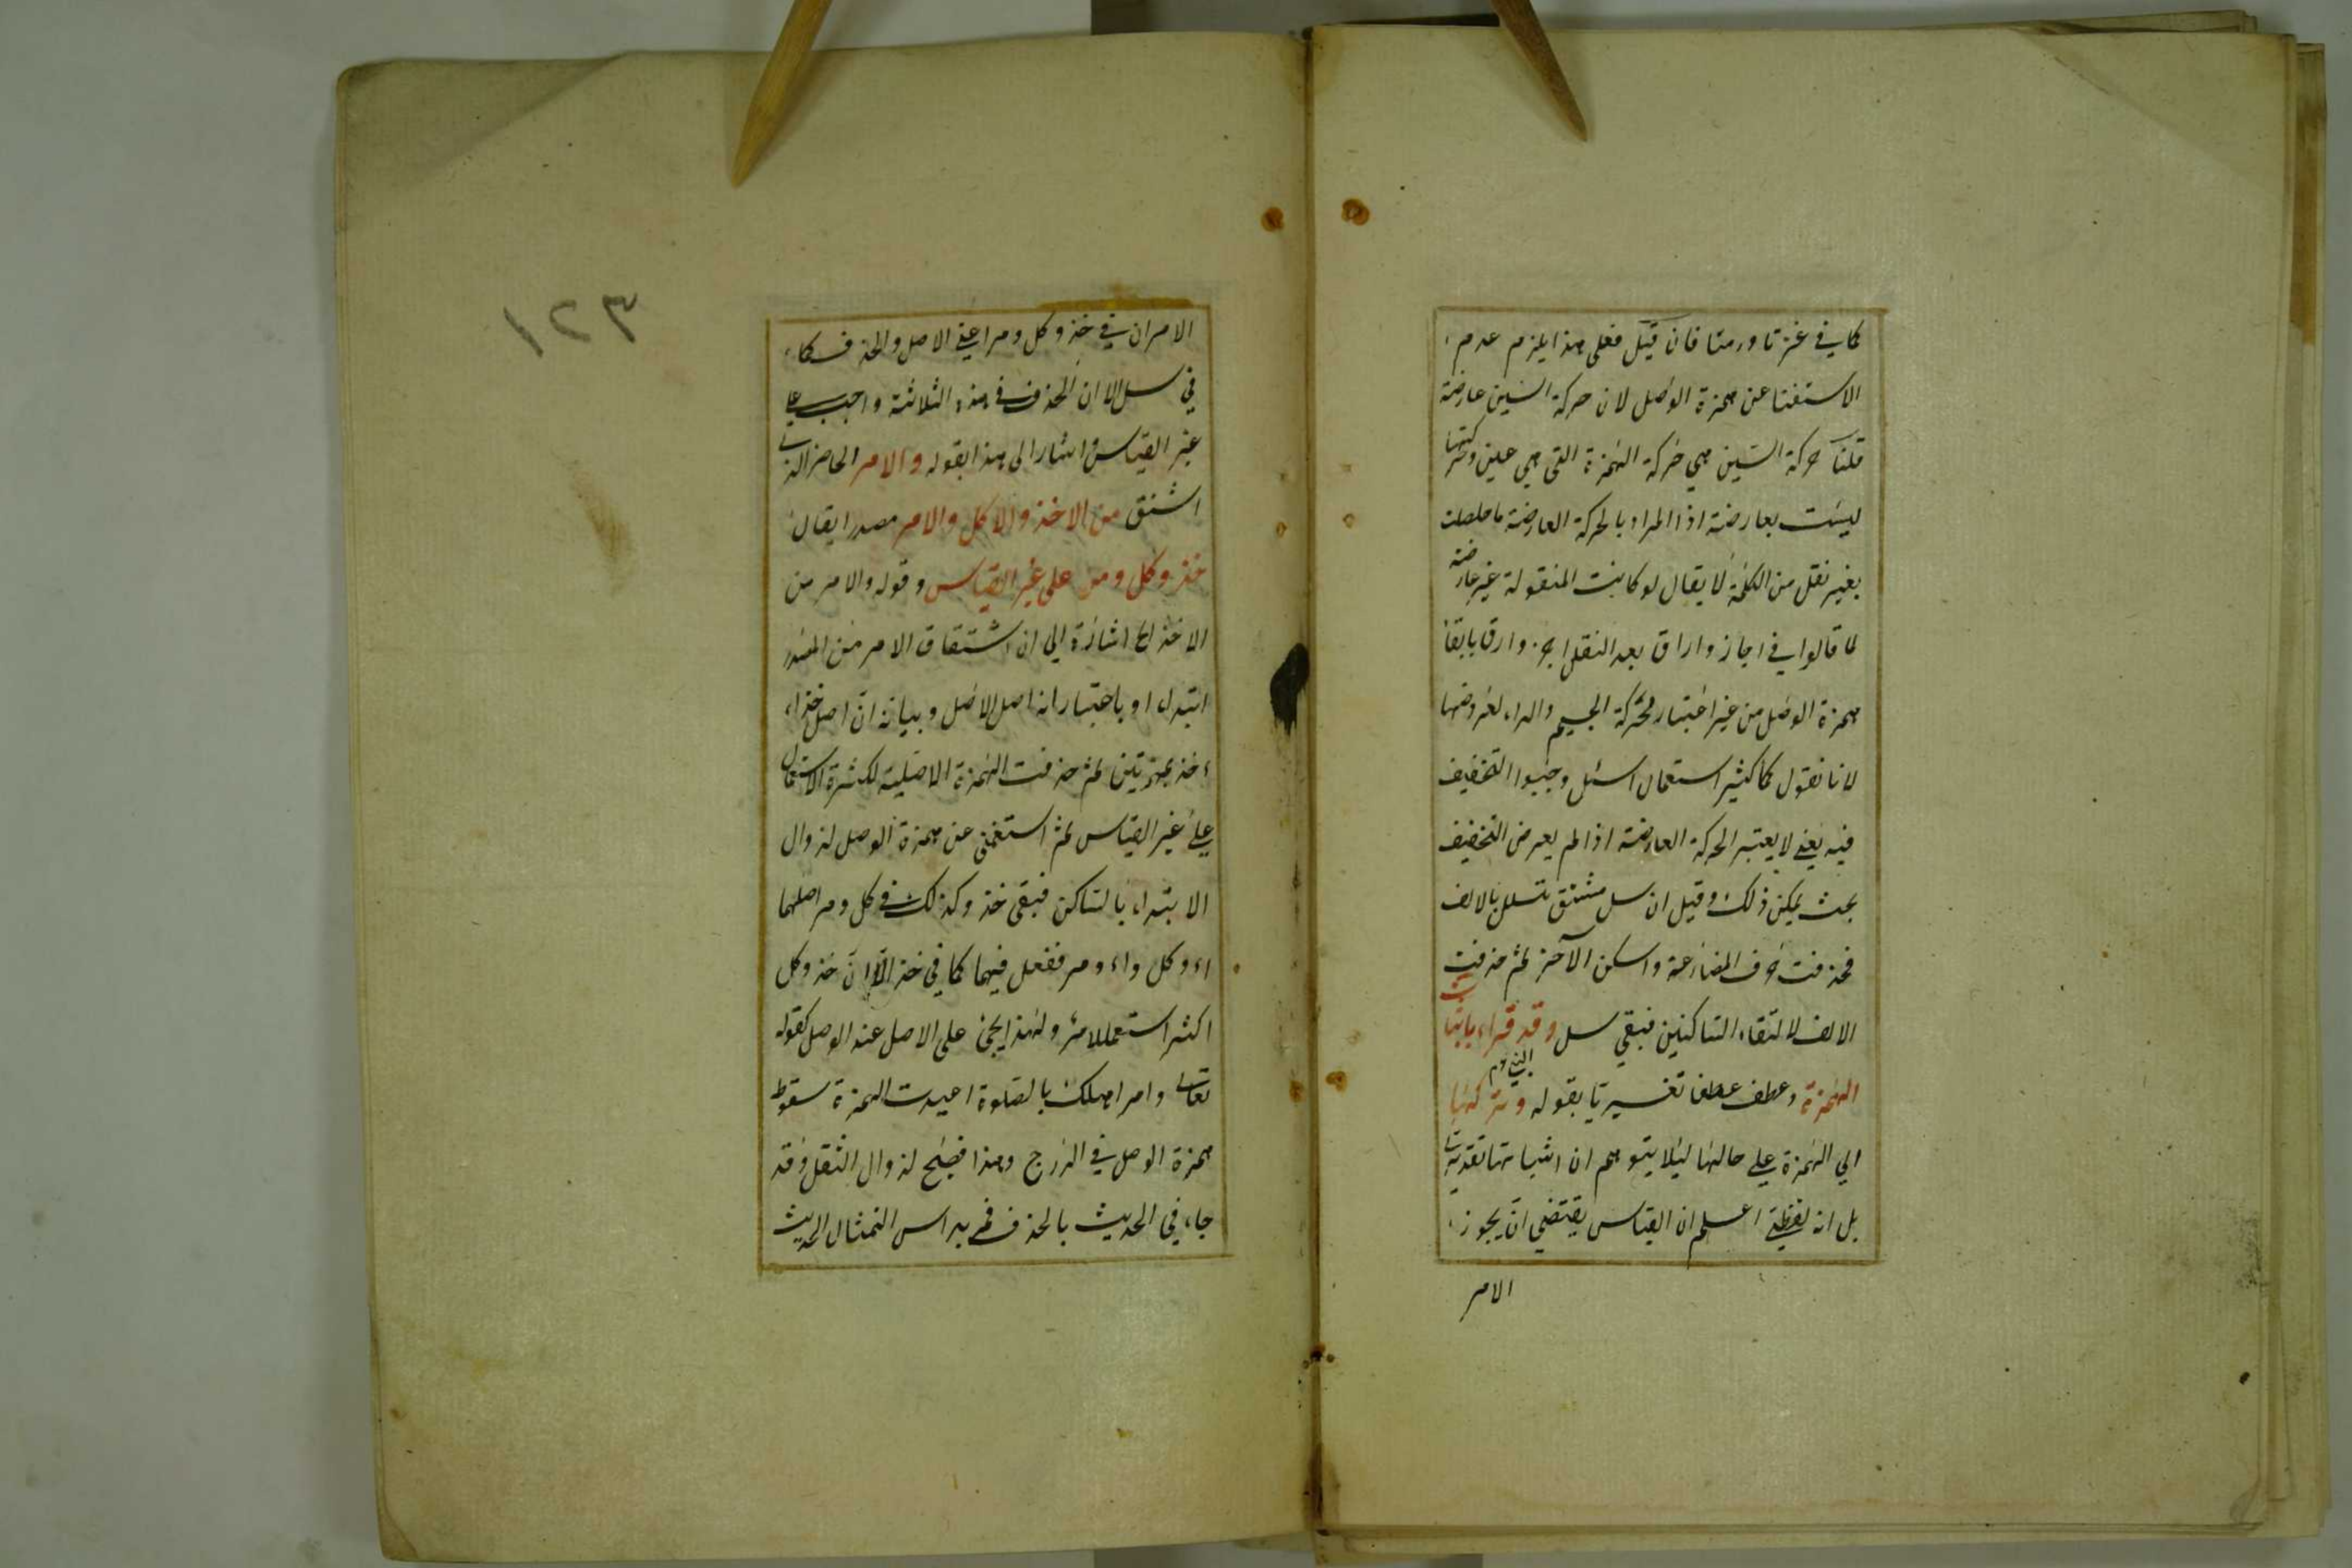 كما في غزتا ورمتا فان قيل فعلى هذا يلزم عدم
الاستغنا عن همزة الوصل لان حركة السين عارضة
قلنا حركة السين هي حركة الهمزة التي هي عين وحركتها
ليست بعارضة اذا المراد بالحركة العارضة ما حصلت
بغير نقل من الكلمة لا يقال لو كانت المنقولة غير عارضة
لما قالوا في اجاز واراق بعد النقل وارق بابقا
همزة الوصل من غير اعتبار محركة الجيم والراء لعروضها
لانا نقول لما كثير استعمال اسئل وجبوا التخفيف
فيه يعني لا يعتبر الحركة العارضة اذا لم يعرض التخفيف
بحث يمكن ذلك وقيل ان سل مشتق تسال بالالف
فحذفت حرف المضارعة واسكن الآخر ثم حذفت
الالف لالتقاء الساكنين فبقي سل وقد قراء باثبات
الهمزة وعطف عطفا تفسيريا بقوله وتركها
الي الهمزة علي حالها ليلا يتوهم ان اثباتها تقديري
بل انه لفظي اعلم ان القياس يقتضي ان يجوز
الامر
١٢٣
الامران في خذ وكل ومر اعني الاصل والحذف كما
في سل الا ان الحذف في هذه الثلاثة واجب علي
غير القياس واشار الى هذا بقوله والامر الحاضر الذي
اشتق من الاخذ والاكل والامر مصدرا يقال
خذ وكل ومر على غير القياس وقوله والامر من
الاخذ الخ اشارة الي ان اشتقاق الامر من المصدر
ابتداء او باعتبار انه اصل الاصل وبيانه ان اصل خذ اء
ءخذ بهمزتين ثم حذفت الهمزة الاصلية لكثرة الاستعمال
علي غير القياس ثم استغنى عن همزة الوصل لزوال
الابتداء بالساكن فبقى خذ وكذلك في كل ومر اصلهما
اءوكل واءومر ففعل فيهما كما في خذ الا ان خذ وكل
اكثر استعمالا من مر ولهذا يجئ على الاصل عند الوصل كقوله
تعالى وامر اهلك بالصلوة اعيدت الهمزة سقوط
همزة الوصل في الدرج وهذا فصيح لزوال الثقل وقد
جاء في الحديث بالحذف فمر براس التمثال الحديث